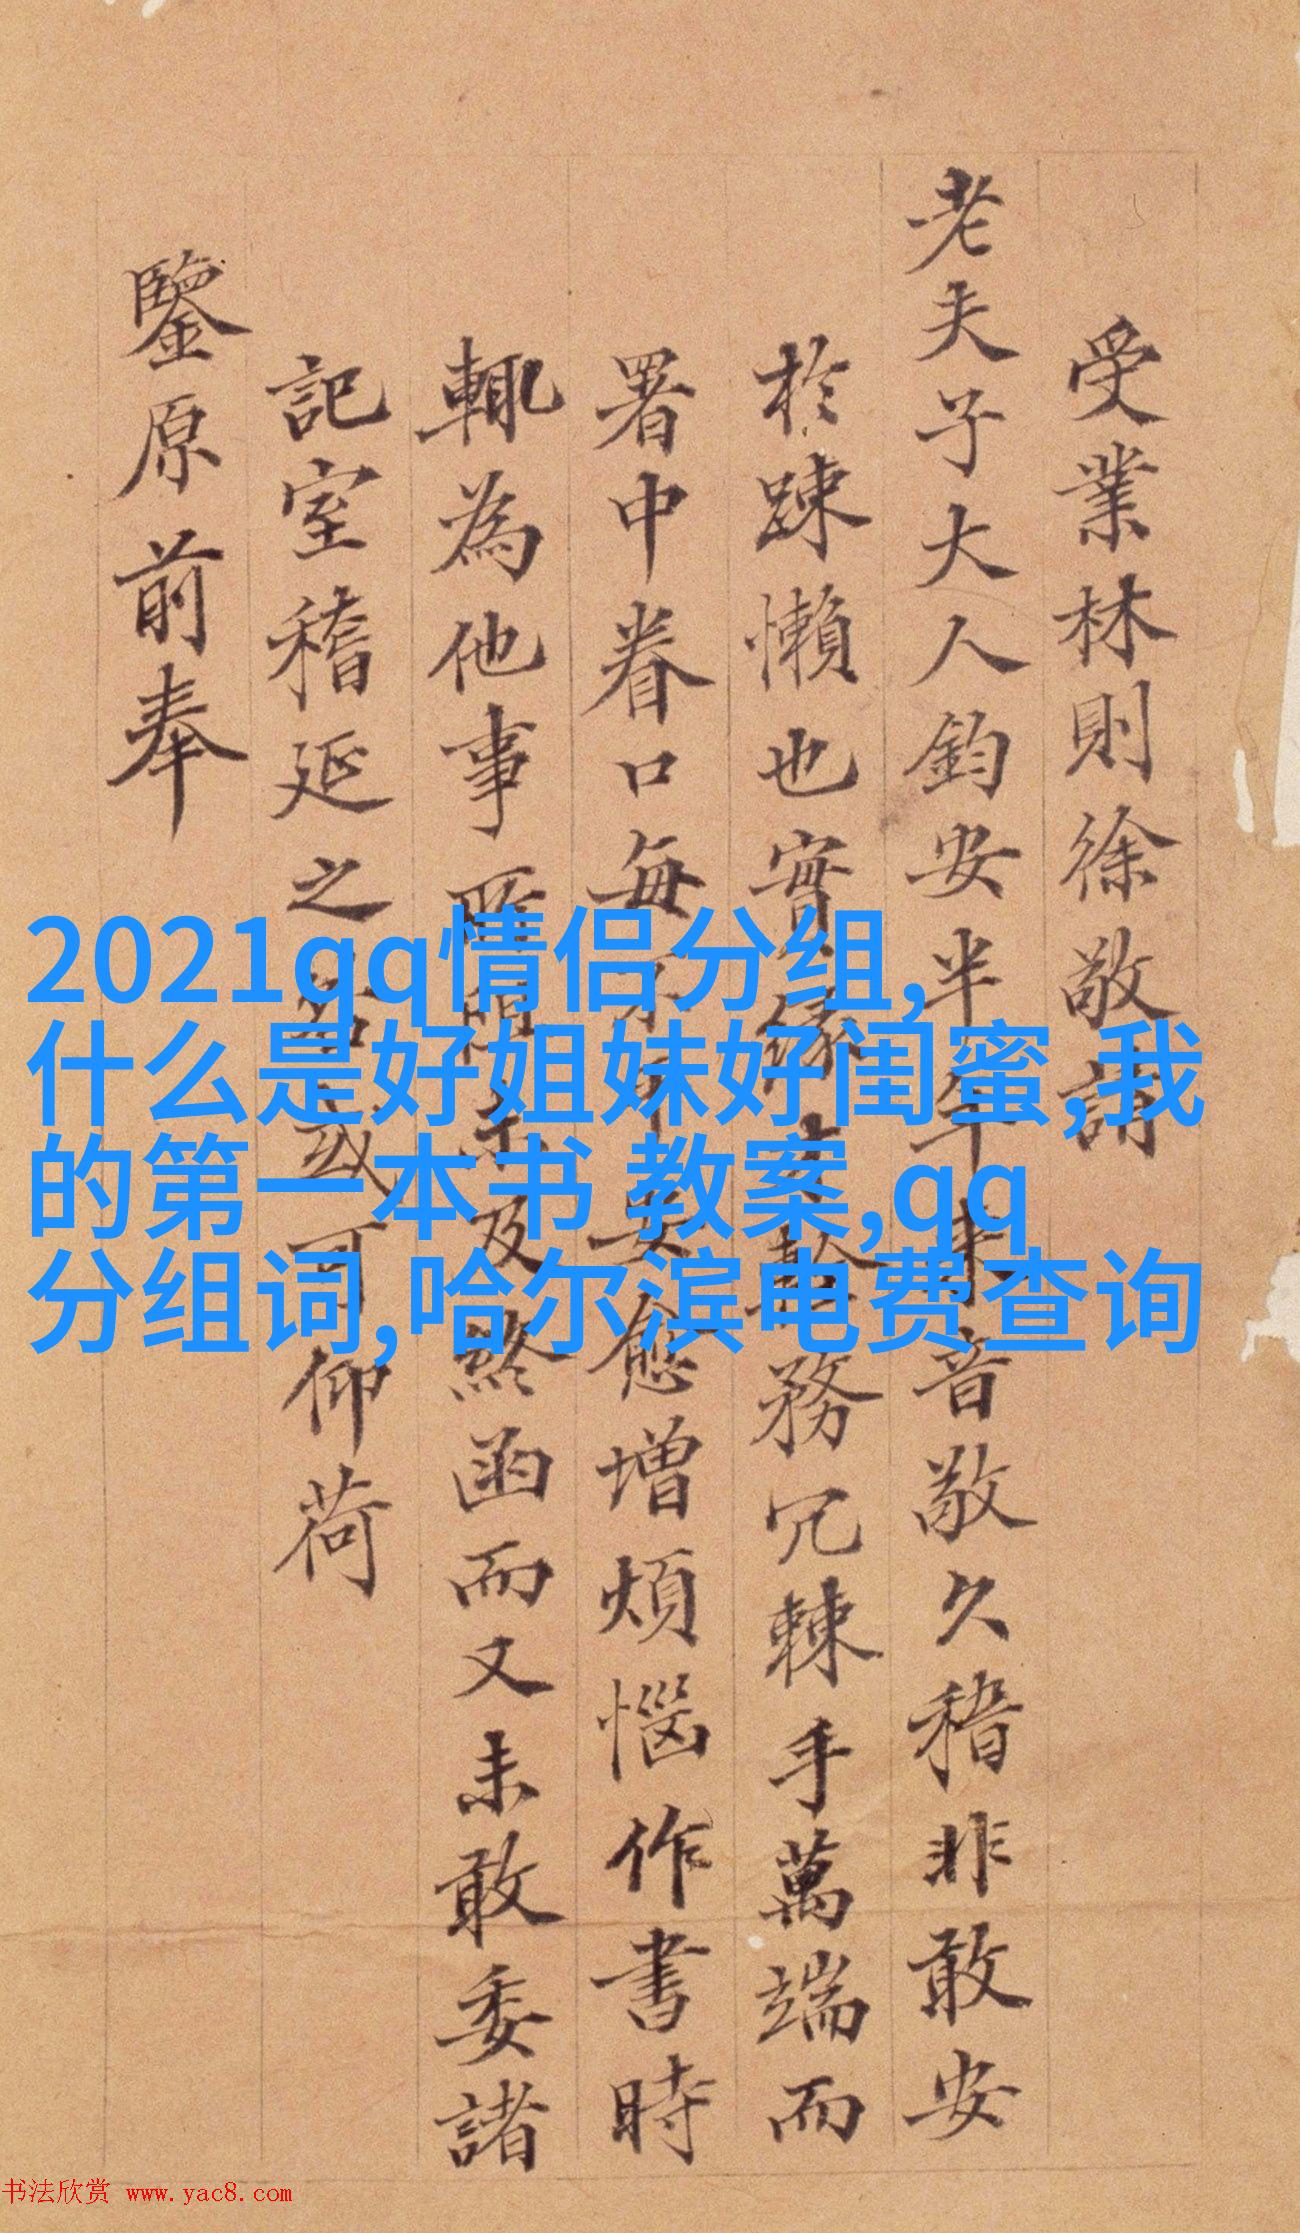 受業林則徐敬請
老夫子大人鈞安半年来音敬久稽非敢安
於踈懶也實縁務冗棘手萬端而
署中眷口每不平安愈增煩惱作書時
輒為他事所阻未及終函而又未敢委諸
記室稽延之咎或可仰荷
鑒原前奉
2021qq情侣分组,
什么是好姐妹好闺蜜,我
的第一本书 教案,qq
分组词,哈尔滨电费查询
书法欣赏 www.yac8.com